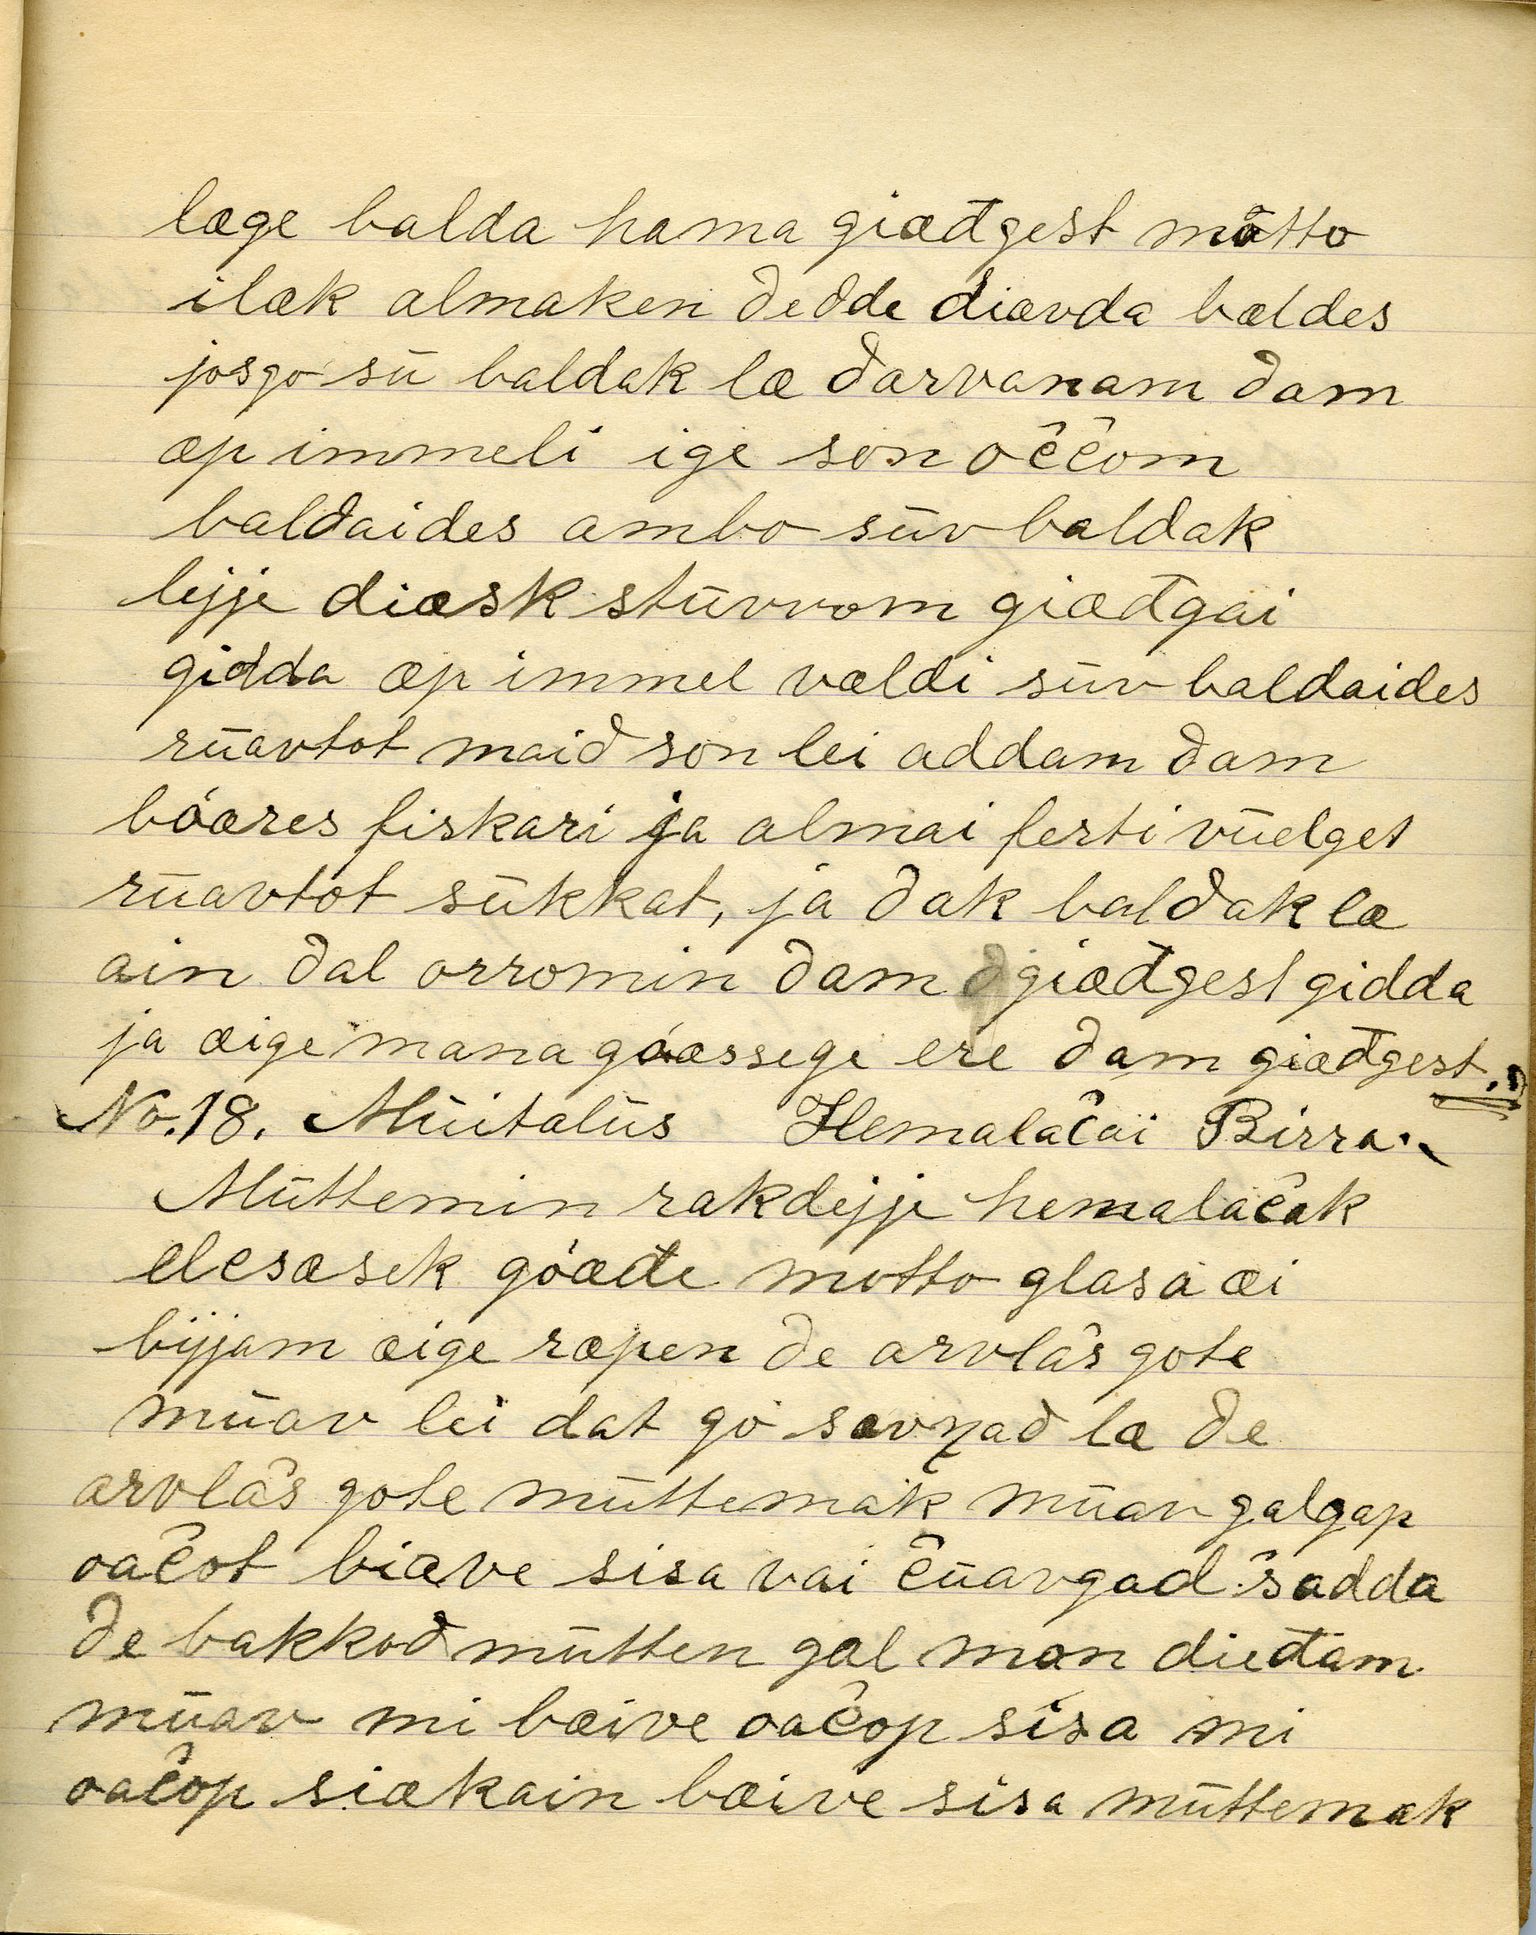 læge balda hama giæđgest mutto
ilæk almaken ðedde diævda bældes
josgo sü baldak læ ðarvanam ðam
æp immeli ige son oĉĉom
balðaides ambo süv baldak
lejje diæsk stüvrom giæđgai
gidda æp immel vældi süv baldaides
rüavtot maið son lei addam ðam
bóares fiskari ja almai ferti vüelget
rüavtot sükkat, ja ðak balðak læ
ain ðal orromin ðam giæđgest gidda
ja æige mana góassege ere ðam giæđgest.
No. 18. Müitalüs Hemalaĉai Birra.
Müttemin rakdejje hemalaĉak
elesæsek góæđe mutto glasa æi
bijjam æige ræpen ðe arvlâs gote
müav lei dat go sævŋad læ ðe
arvlâs gote müttemak müav galgap
oaĉot biæve sisa vai ĉüavgad ŝadda
ðe bakkoð mütten gal mon dieđam
müav mi bæive oaĉop sisa mi
oaĉop siækain bæive sisa müttemak